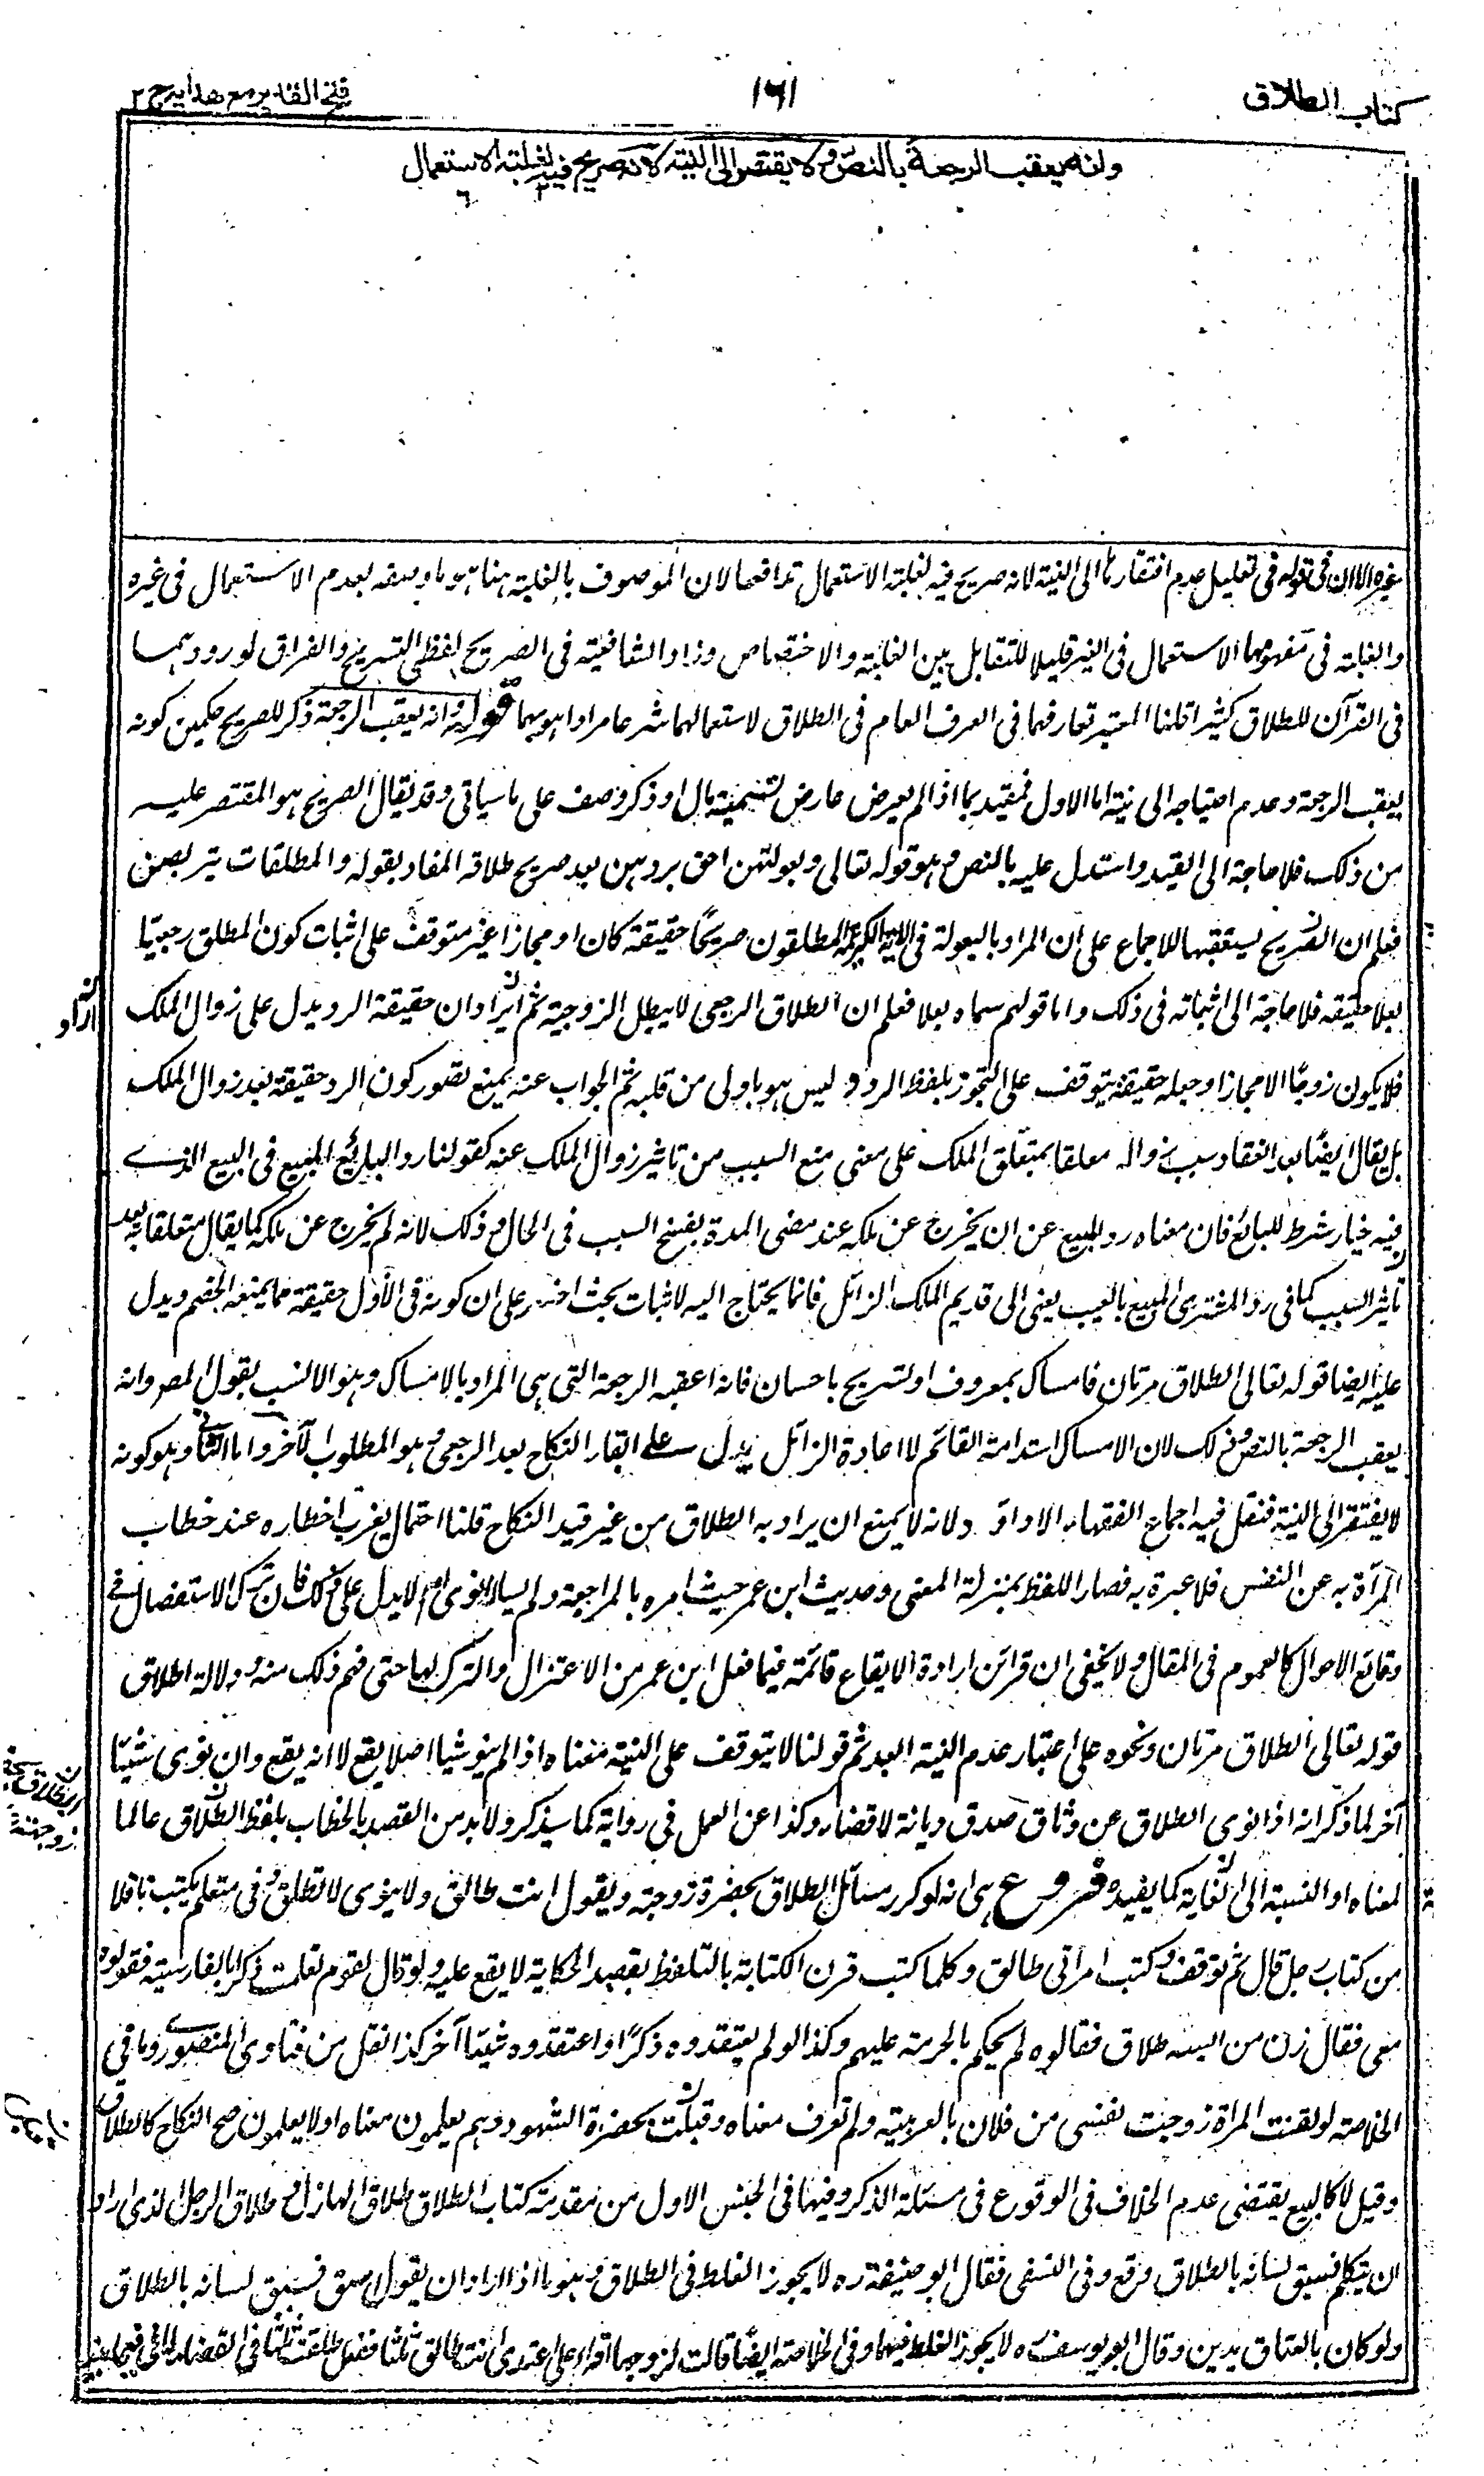 كتاب الطلاق
١٦١
فتح القدير مع هدايه ج ٢
وانه يعقب الرجعة بالنص ولا يفتقر الى النية لانه صريح فيه لغلبة الاستعمال
غيره الا ان فى قوله فى تعليل عدم افتقارها الى النية لانه صريح فيه لغلبة الاستعمال تدافعا لان الموصوف بالغلبة هنا هو ما وصفه بعدم الاستعمال فى غيره
والغلبة فى مفهومها الاستعمال فى الغير قليلا للتقابل بين الغلبة والاختصاص وزاد الشافعية فى الصريح لفظى التسريح والفراق لورودهما
فى القرآن للطلاق كثيرا قلنا المعتبر تعارفهما فى العرف العام فى الطلاق لاستعمالهما شرعا مرادا هو بهما قوله وانه يعقب الرجعة ذكر للصريح حكمين كونه
يعقب الرجعة وعدم احتياجه الى نية اما الاول فمقيد بما اذا لم يعرض عارض لتسمية مال او ذكر وصف على ما سياتى وقد يقال الصريح هو المقتصر عليه
من ذلك فلا حاجة الى القيد واستدل عليه بالنص وهو قوله تعالى وبعولتهن احق بردهن بعد صريح طلاقه المفاد بقوله والمطلقات يتربصن
فعلم ان الصريح يستعقبها للاجماع على ان المراد بالبعولة فى الآية الكريمة المطلقون صريحا حقيقة كان او مجازا غير متوقف على اثبات كون المطلق رجعيا
بعلا حقيقة فلا حاجة الى اثباته فى ذلك واما قولهم سماه بعلا فعلم ان الطلاق الرجعى لا يبطل الزوجية ثم ايراد ان حقيقة الرد يدل على زوال الملك
فلا يكون زوجا الا مجازا وجعله حقيقة يتوقف على التجوز بلفظ الرد و ليس هو باولى من قلبه ثم الجواب عنه بمنع تصور كون الرد حقيقة بعد زوال الملك
بل يقال ايضا بعد انعقاد سبب زواله معلقا بمتعلق الملك على معنى منع السبب من تاثير زوال الملك عنه كقولنا رد البائع المبيع فى البيع الذى
فيه خيار شرط للبائع فان معناه رد المبيع عن ان يخرج عن ملكه عند مضى المدة بفسخ السبب فى الحال وذلك لانه لم يخرج عن ملكه كما يقال متعلقا به بعد
تاثير السبب كما فى رد المشترى المبيع بالعيب يعنى الى قديم الملك الزائل فانما يحتاج اليه لاثبات بحث اخر على ان كونه فى الاول حقيقة مما يمنعه الخصم ويدل
عليه ايضا قوله تعالى الطلاق مرتان فامساك بمعروف او تسريح باحسان فانه اعقبه الرجعة التى هى المراد بالامساك وهو الانسب بقول المصر وانه
يعقب الرجعة بالنص وذلك لان الامساك استدامة القائم لا اعادة الزائل يدل على ابقاء النكاح بعد الرجعى وهو المطلوب الآخر واما الثانى وهو كونه
لا يفتقر الى النية فنقل فيه اجماع الفقهاء الا داؤد ولانه لا يمنع ان يراد به الطلاق من غير قيد النكاح قلنا احتمال يغرب اخطاره عند خطاب
المرأة به عن النفس فلا عبرة به فصار اللفظ بمنزلة المعنى وحديث ابن عمر حيث امره بالمراجعة ولم يسال انوى ام لا يدل على ذلك فان ترك الاستفصال فى
وقائع الاحوال كالعموم فى المقال ولا يخفى ان قرائن ارادة الايقاع قائمة فيما فعل ابن عمر من الاعتزال والترك لها حتى فهم ذلك منه ودلالة اطلاق
قوله تعالى الطلاق مرتان ونحوه على اعتبار عدم النية ابعد ثم قولنا لا يتوقف على النية معناه اذا لم ينو شيا اصلا يقع لا انه يقع وان نوى شيئا
آخر لما ذكر انه اذا نوى الطلاق عن وثاق صدق ديانة لا قضاء وكذا عن العمل فى رواية كما سيذكر ولا بد من القصد بالخطاب بلفظ الطلاق عالما
لمعناه او النسبة الى الغاية كما يفيده فروع هى انه لو كرر مسائل الطلاق بحضرة زوجته ويقول انت طالق ولا ينوى لا تطلق وفى متعلم يكتب ناقلا
من كتاب رجل قال ثم توقف وكتب امرأتى طالق وكلما كتب قرن الكتابة بالتلفظ بقصد الحكاية لا يقع عليه ولو قال لقوم تعلمت ذكرا بالفارسية فقولوه
معى فقال زن من البسته طلاق فقالوه لم يحكم بالحرمة عليهم وكذا لو لم يعتقدوه ذكرا او اعتقدوه شيئا آخر كذا نقل من فتاوى المنصورى وما فى
الخلاصة لو لقنت المرأة زوجت نفسى من فلان بالعربية ولم تعرف معناه وقبلت بحضرة الشهود وهم يعلمون معناه او لا يعلمون صح النكاح كالطلاق
وقيل لا كالبيع يقتضى عدم الخلاف فى الوقوع فى مسئلة الذكر وفيها فى الجنس الاول من مقدمة كتاب الطلاق طلاق الهازل وطلاق الرجل الذى اراد
ان يتكلم فسبق لسانه بالطلاق وقع وفى النسفى فقال ابو حنيفة ره لا يجوز الغلط فى الطلاق وهو ما اذا اراد ان يقول اسقى فسبق لسانه بالطلاق
ولو كان بالعتاق يدين وقال ابو يوسف ره لا يجوز الغلط فيهما وفى الخلاصة ايضا قالت لزوجها اقرأ على اعتدى انت طالق ثلثا ففعل طلقت ثلثا فى القضاء